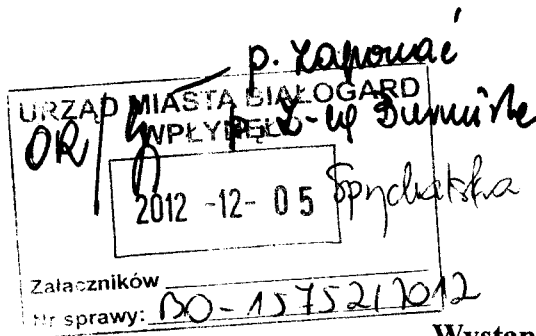 p. zapoznać
URZĄD MIASTA BIAŁOGARD
OR/ WPŁYNĘŁO p. Z-cę Burmistrza
2012 -12- 05
Załączników
Nr sprawy: BO-15752/2012
Wystąp